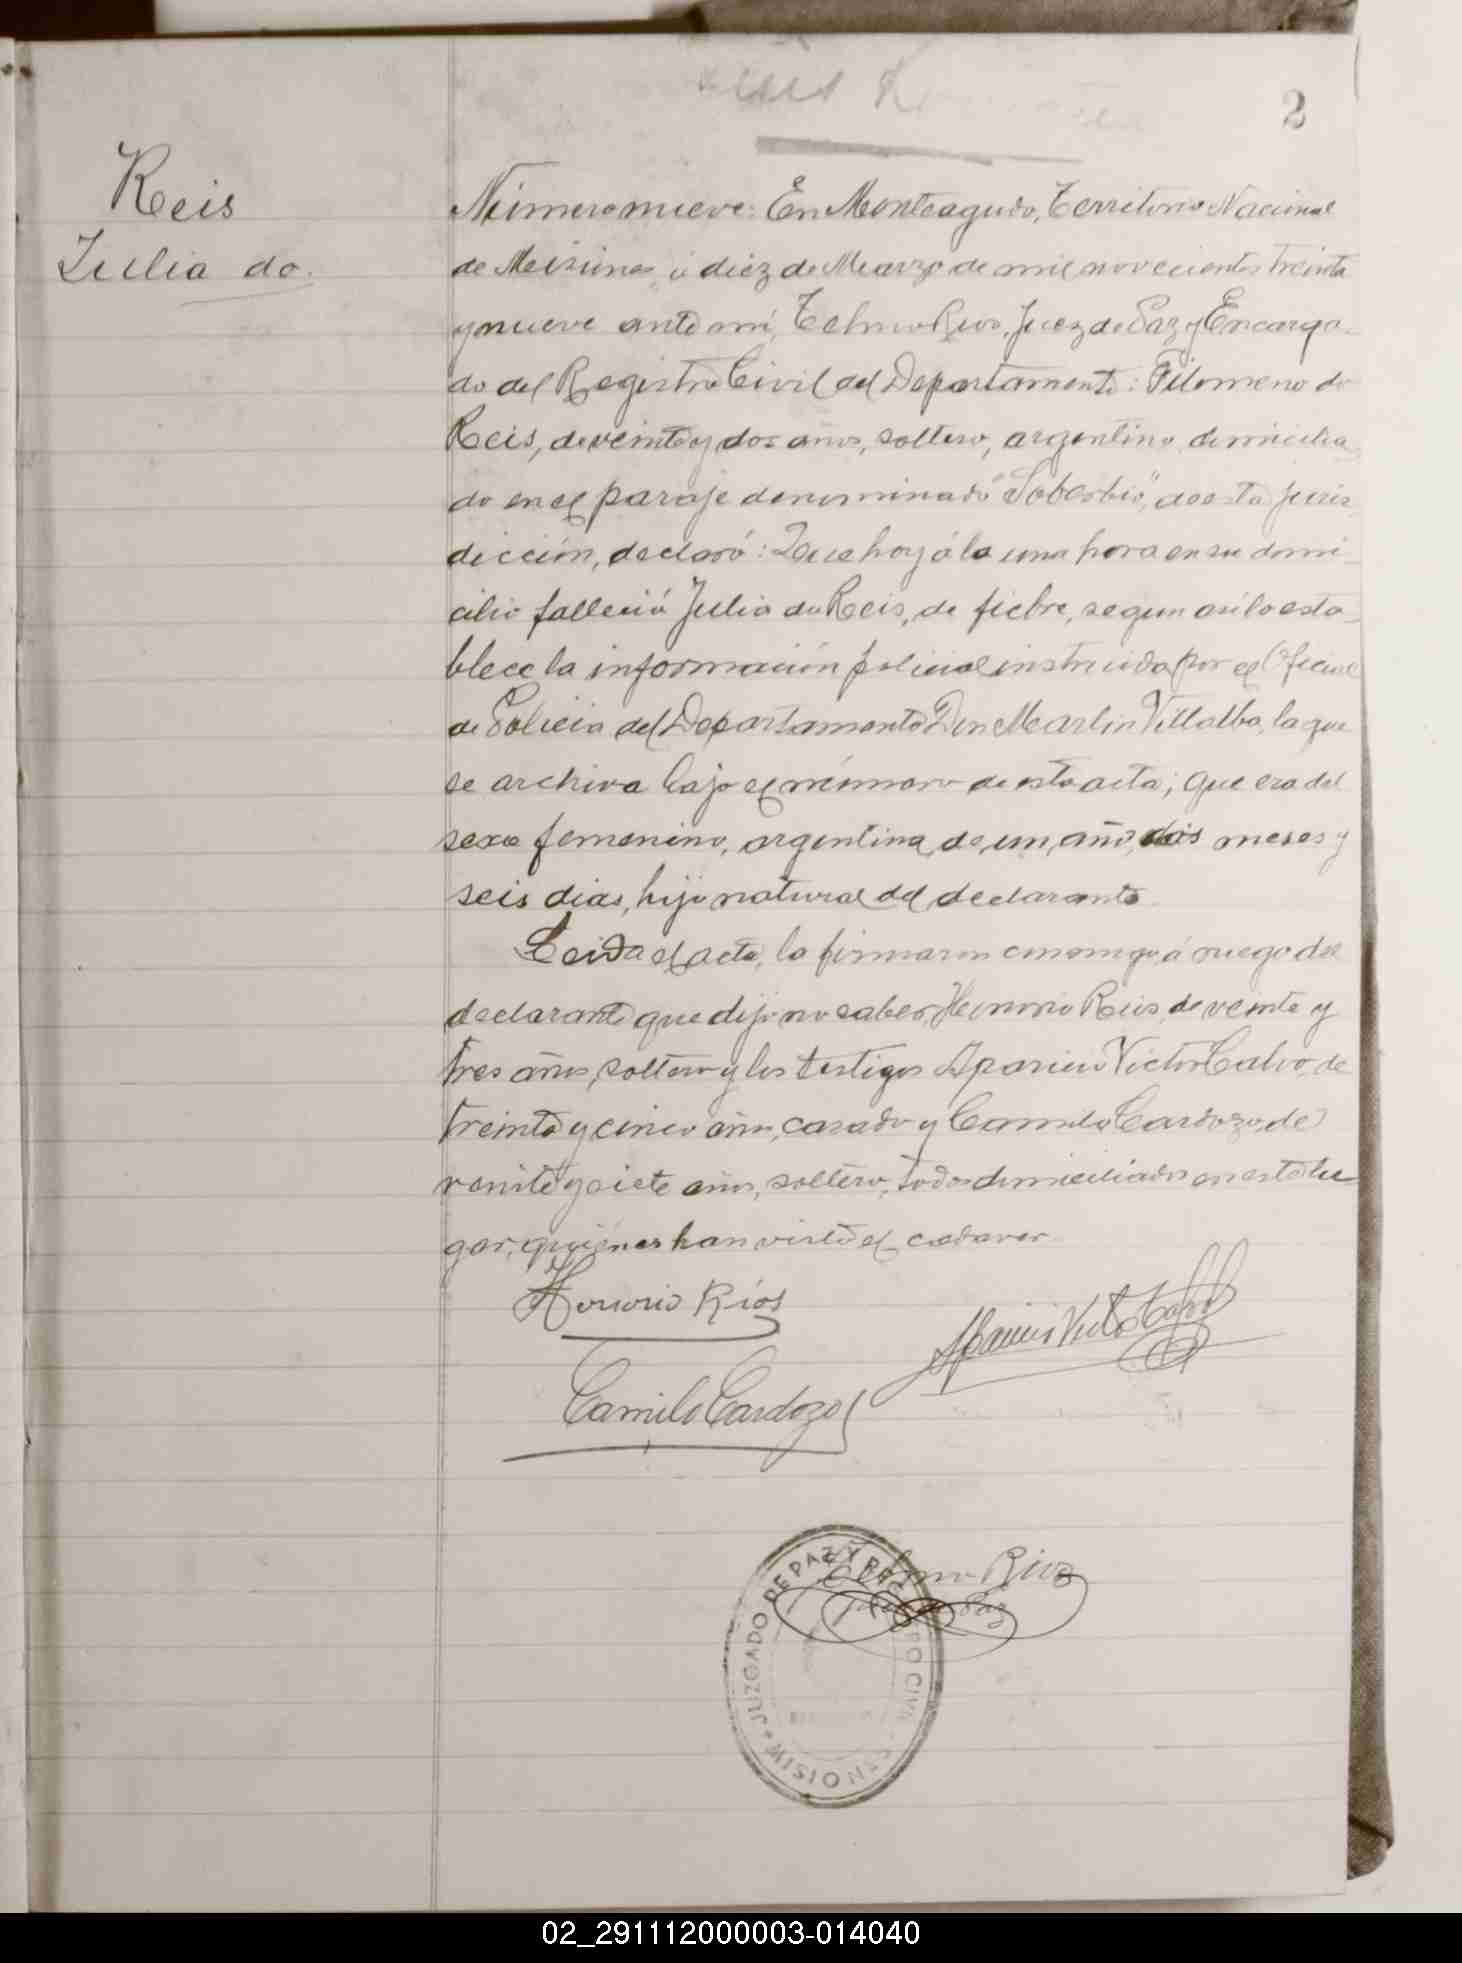 2
Reis
Julia do.
Número nueve: En Monteagudo, Territorio Nacional
de Misiones, á diez de Marzo de mil novecientos treinta
y nueve ante mí, Telmo Rios, Juez de Paz y Encarga-
do del Registro Civil del Departamento: Filomeno do
Reis, de veinte y dos años, soltero, argentino, domicilia
do en el paraje denominado "Soberbio", de esta juris
dicción, declaró: Que hoy á la una hora en su domi-
cilio falleció Julia do Reis, de fiebre, segun asi lo esta-
blece la información policial instruida por el Oficial
de Policia del Departamento Don Martin Villalba, la que
se archiva bajo el número de esta acta; que era del
sexo femenino, argentina, de un año, dos meses y
seis dias, hijo natural del declarante.
Leida el acta, la firmaron conmigo, á ruego del
declarante que dijo no saber, Honorio Rios, de veinte y
tres años, soltero y los testigos Aparicio Victor Calvo, de
treinta y cinco años, casado y Camilo Cardozo, de
veinte y siete años, soltero, todos domiciliados en este lu
gar, quiénes han visto el cadaver.
Honorio Ríos
Aparicio Victor Calvo
Camilo Cardozo
Telmo Rios
Juez de Paz
JUZGADO DE PAZ Y REGISTRO CIVIL
MISIONES
02_291112000003-014040